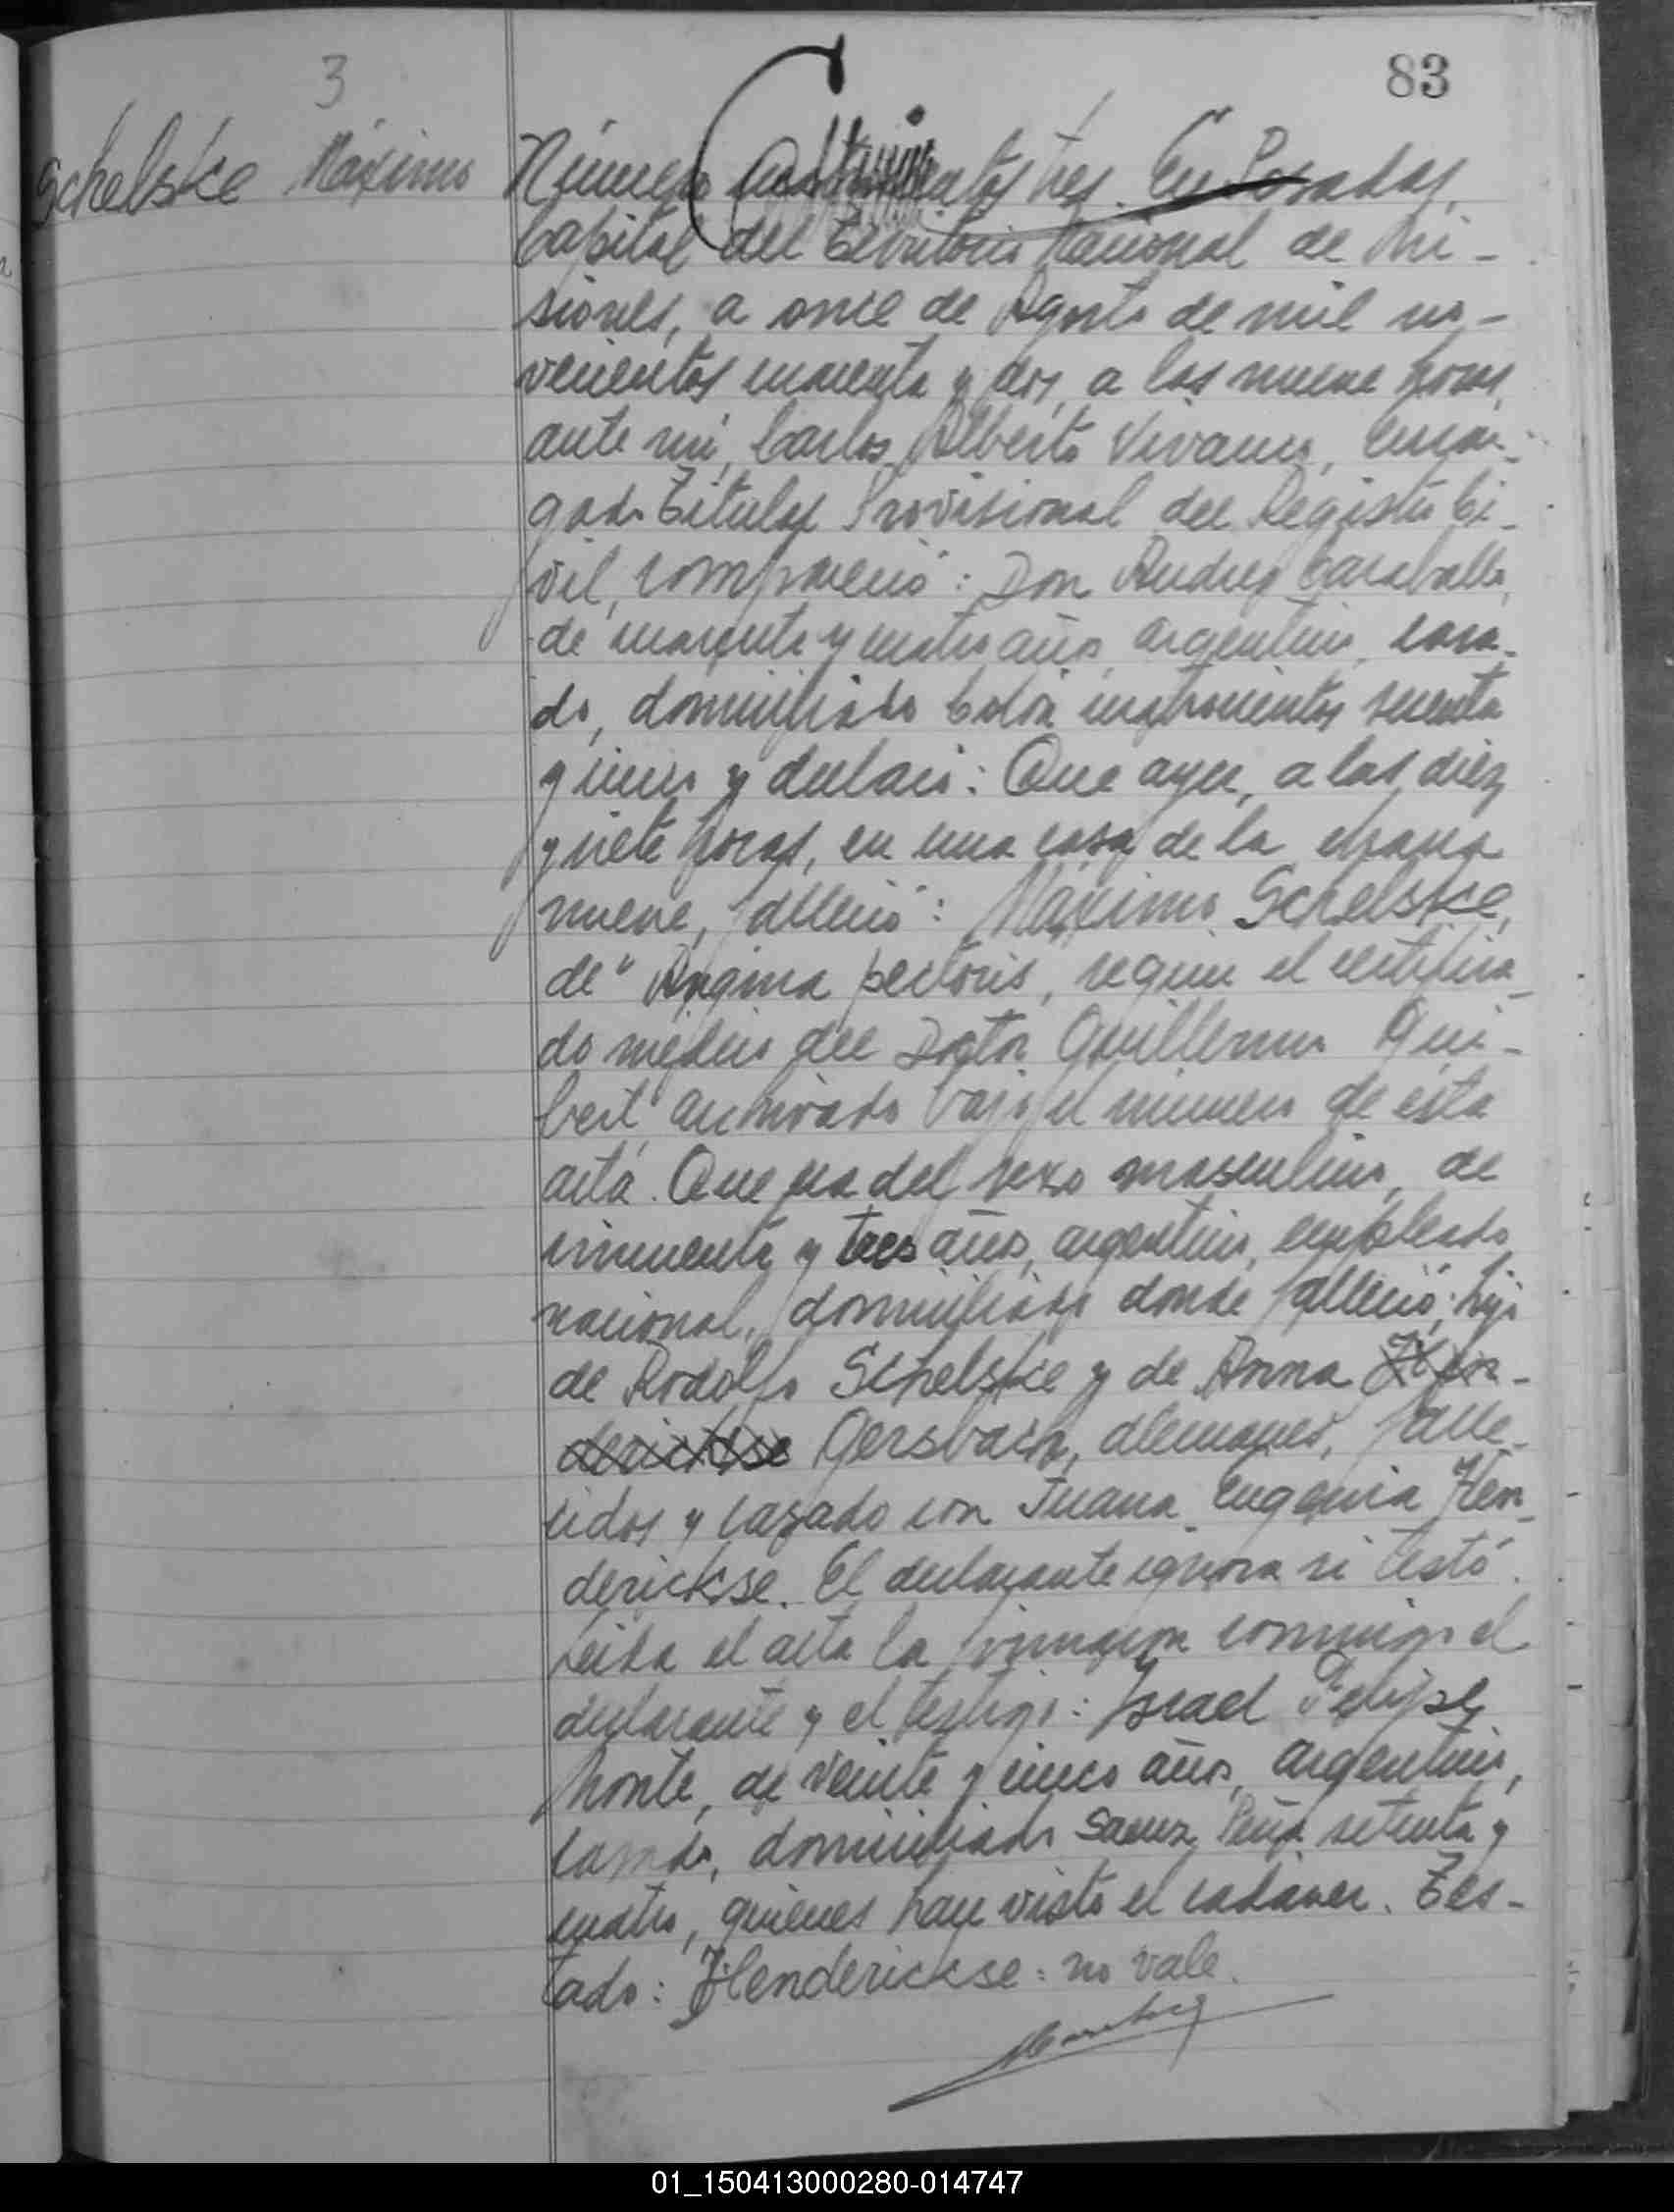 83
3
Schelske Máximo
Número tres. En Posadas,
Capital del Territorio Nacional de Mi-
siones, a once de Agosto de mil no-
vecientos cuarenta y dos, a las nueve horas,
ante mí, Carlos Alberto Vivanco, encar-
gado Titular Provisional del Registro Ci-
vil, compareció: Don Andres Caraballo,
de cuarenta y cuatro años, argentino, casa-
do, domiciliado Colón cuatrocientos
y cinco y declaró: Que ayer, a las diez
y siete horas, en una casa de la chacra
nueve, falleció: Máximo Schelske,
de "Angina pectoris, según el certifica-
do médico del Doctor Guillermo
archivado bajo el número de esta
acta. Que era del sexo masculino, de
cincuenta y tres años, argentino, empleado
nacional, domiciliado donde falleció; hijo
de Rodolfo Schelske y de Anna Hen-
derickse Gersbach, alemanes, falle-
cidos y casado con Juana Eugenia Hen-
derickse. El declarante ignora si testó.
Leída el acta la firmaron conmigo el
declarante y el testigo: Israel Felipe
Monte, de veinte y cinco años, argentino,
casado, domiciliado Saenz Peña setenta y
cuatro, quienes han visto el cadaver. Tes-
tado: Henderickse: no vale.
01_150413000280-014747